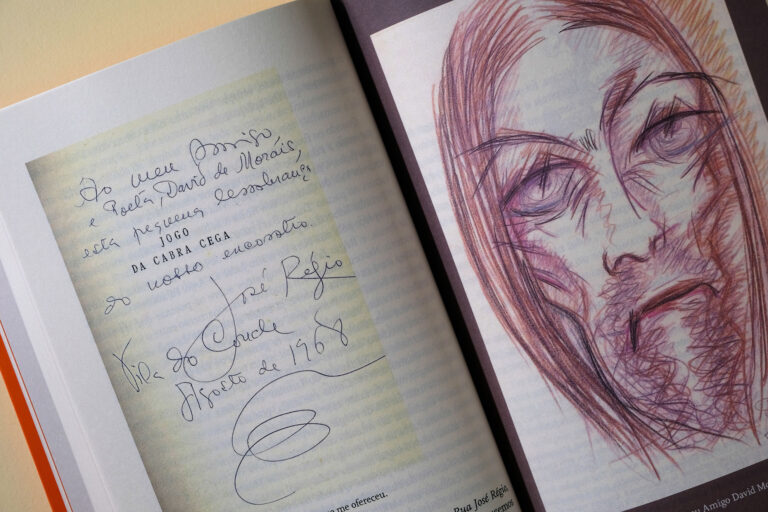 Ao meu Amigo
e Poeta, David de Morais,
esta pequena lembrança
JOGO
DA CABRA CEGA
do nosso encontro.
José Régio
Vila do Conde
Agosto de 1968
me ofereceu.
Rua José Régio,
Amigo David Mo